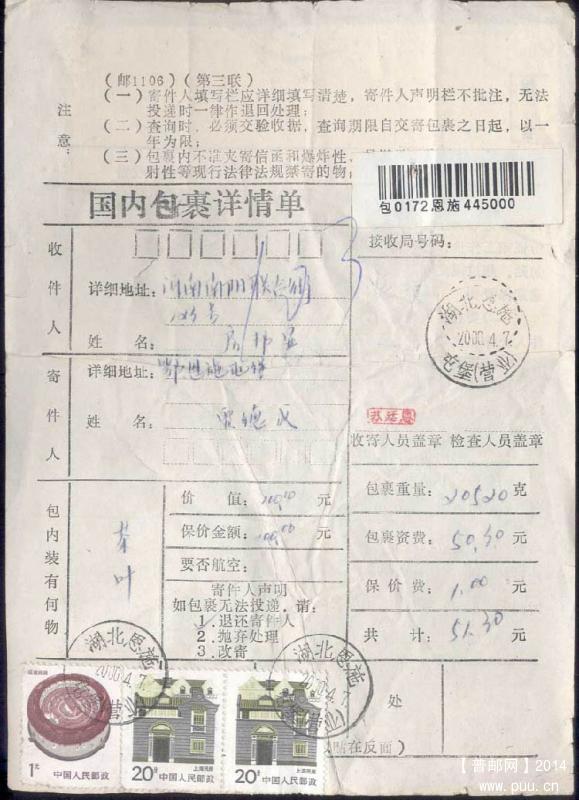 （邮1106）（第三联）
注意：
（一）寄件人填写栏应详细填写清楚，寄件人声明栏不批注，无法
投递时一律作退回处理；
（二）查询时，必须交验收据，查询期限自交寄包裹之日起，以一
年为限；
（三）包裹内不准夹寄信函和爆炸性、
射性等现行法律法规禁寄的物
包0172恩施445000
国内包裹详情单
接收局号码：
收件人
详细地址：
姓名：
湖北恩施
2000.4.7
寄件人
详细地址：
姓名：
苏廷恩
收寄人员盖章 检查人员盖章
包内装有何物
茶叶
价值： 元
保价金额： 元
要否航空：
寄件人声明
如包裹无法投递，请：
1.退还寄件人
2.抛弃处理
3.改寄
包裹重量：20520克
包裹资费：50.30元
保价费：1.00元
共计：51.30元
湖北恩施
2000.4.7
湖北恩施
2000.4.7
处
贴在反面）
福建民居
1元
中国人民邮政
上海民居
20分
中国人民邮政
上海民居
20分
中国人民邮政
【普邮网】2014
www.puu.cn